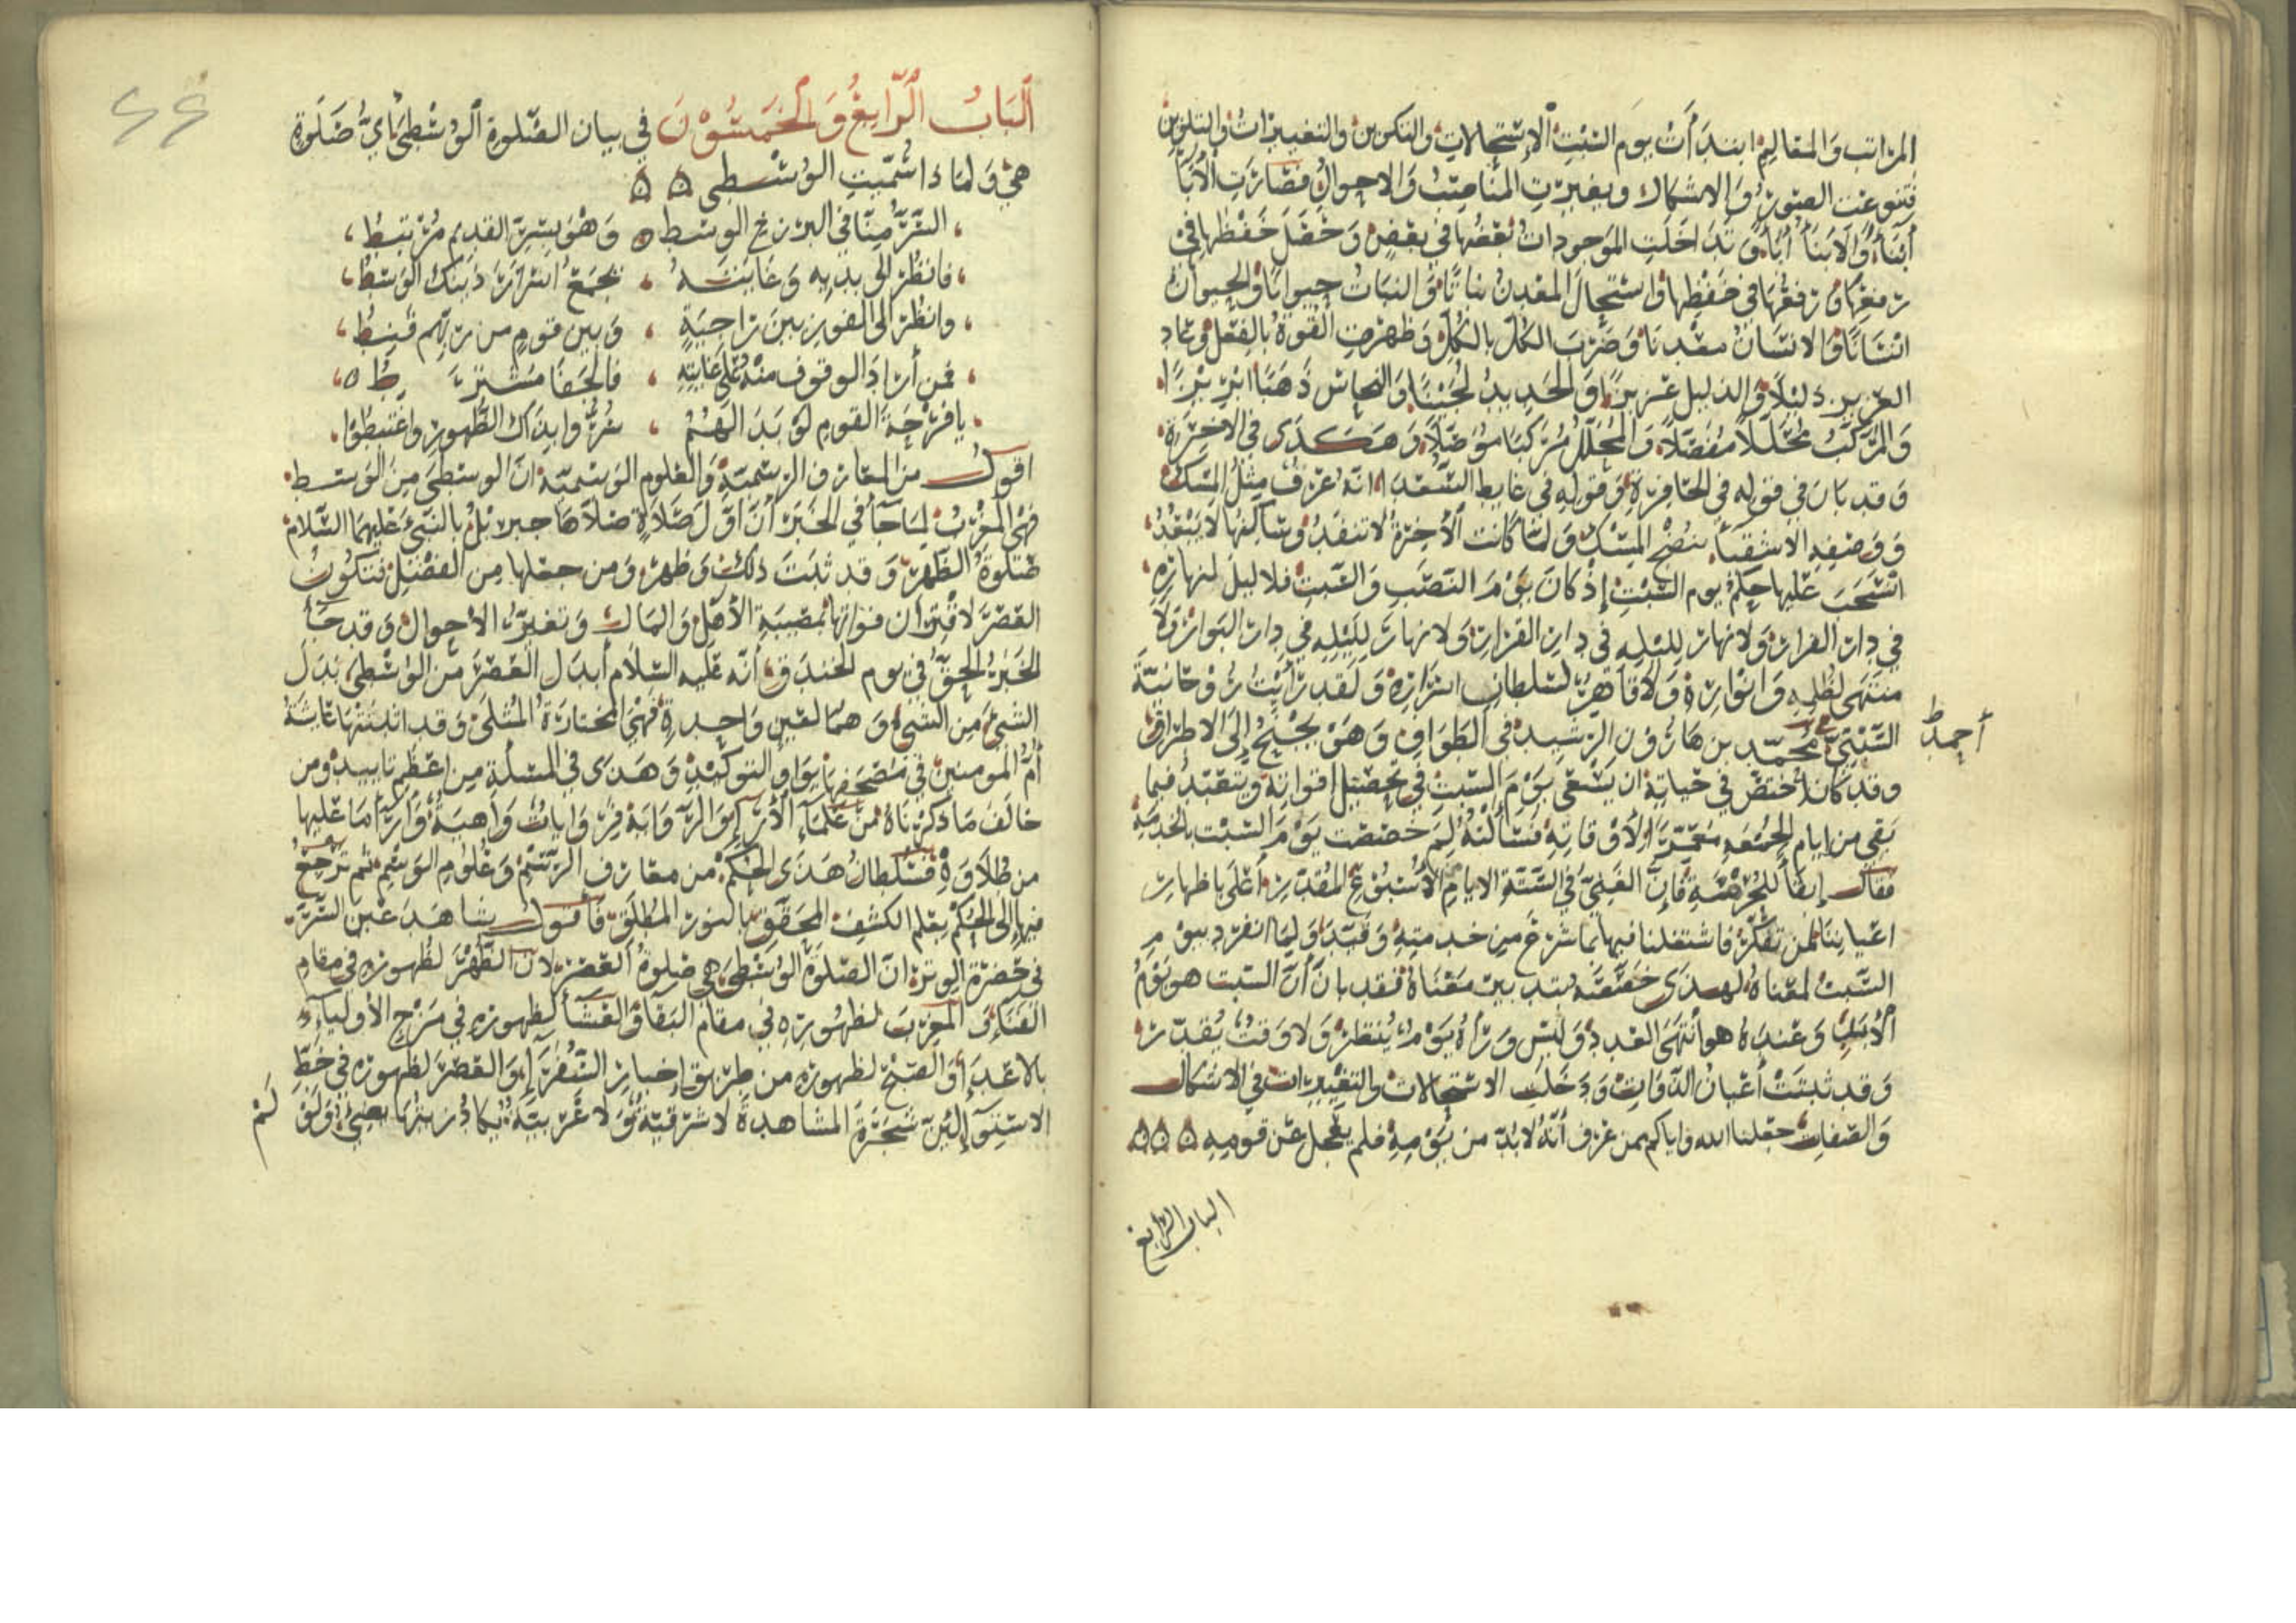 المراتب والمقاليم ابتدأت يوم السبت الاستحالات والتكوين والتغييرات والتلوين
فتنوعت الصور والاشكال وبغيرت المناصب والاحوال فصارت الأبآ
أبنآء والابنآ أبآء وتداخلت الموجودات بعضها في بعض وحصل خفضها في
رفعها ورفعها في خفضها واستحال المعدن نباتًا والنبات حيوانًا والحيوان
انسانًا والانسان معدنًا وضرب الكل بالكل وظهرت القوة بالفعل وعاد
العزيز ذليلًا والذليل عزيزًا والحديد لجينًا والنحاس ذهبًا ابريزًا
والمركب محللًا مفصلًا والمحلل مركبا موصلًا وهكذى في الاخرة
وقد بان في قوله في الحافرة وقوله في غايط السعدا انه عرف مثل المسك
ووصفه الاشقيآ بنضح المسك ولما كانت الآخرة لا تنفد ومتآكلها لا يبعد
انسحب عليها حكم يوم السبت إذ كان يوم النصب والسبت فلا ليل لنهاره
في دار القرار ولا نهار لليله في دار القرار ولا نهار لليله في دار البوار ولا
منتهى لظله وانواره ولا قاهر لسلطان اسراره ولقد رأيت روحانية
السبتي محمد بن هارون الرشيد في الطواف وهو يجنح إلى الاطراف
أحمد
وقد كان اختص في حياته ان يسعى يوم السبت في تحصيل اقواته ويتعبد فيما
بقي من ايام الجمعه معمرًا لأوقاته فسألته لم خصصت يوم السبت بالخدمة
فقال إبقآ للحرمة فإن الغني في الستة الايام الأسبوع المقدر أعلى باظهار
اعياننا لمن تفكر فاشتغلنا فيها بما شرع من خدمته وقيد ولما انفرد بيوم
السبت لمعناه لهدى خصصته بتدبير معناه فقد بان أن السبت هو يوم
الأبد وعنده هو أنتهى العدد وليس ورآه يوم ينتظر ولا وقت يقدر
وقد ثبتت أعيان الذوات ودخلت الاستحالات والتغييرات في الاشكال
والصفات جعلنا الله واياكم ممن عرف أنه لا بد من يومه فلم يعجل عن قومه ۵۵۵
الباب الرابع
۶۶
الباب الرابع والخمسون في بيان الصلوة الوسطى أي صلوة
هي ولماذا سميت الوسطى ۵ ۵
السر منا في البرزخ الوسط وهو بسر القديم مرتبط
فانظر الى بديه وغايته تجمع اسرار ذينك الوسط
وانظر الى الفوز بين راجية وبين قوم من ربهم قنط
فمن أراد الوقوف منه على غايته فالخفا مشترط
يا فرحة القوم لو بدالهم سر وابذاك الظهور واغتبطوا
اقول من المعارف الرسمية والعلوم الوسمية ان الوسطى من الوسط
فهي المغرب لما جآ في الخبر أن اول صلاة صلاها جبريل بالنبي عليهما السلام
صلوة الظهر وقد ثبت ذلك وظهر ومن جعلها من الفضل فتكون
العصر لاقتران فواتها بمصيبة الأهل والمال وتغير الاحوال وقد جآ
الخبر الحق في يوم الخندق أنه عليه السلام أبدل العصر من الوسطى بدل
الشيء من الشيء وهما لعين واحدة فهي المختارة المثلى وقد اثبتتها عائشة
أم المومنين في مصحفها بواو التوكيد وهدى في المسئلة من اعظم تاييد ومن
خالف ما ذكرناه من علمآء الأثر والرواية فروايات واهية وآرآ ما عليها
من طلاوة فسلطان هدى الحكم من معارف الرسم وعلوم الوسم ثم ترجع
فيها الى الحكم بعلم الكشف المحقق بالنور المطلق فأقول شاهد عين السر
في حضرة الوتر ان الصلوة الوسطى هي صلوة العصر لان الظهر لظهوره في مقام
الفنآء والمغرب لظهوره في مقام البقا والعشآ لظهوره في مزج الأوليآء
بالاعدآء والصبح لظهوره من طريق إخبار السفرآء والعصر لظهوره في خط
الاستوآء لئن شجرة المشاهدة لا شرقية ولا غربية يكاد زيتها يضيء ولو
لم